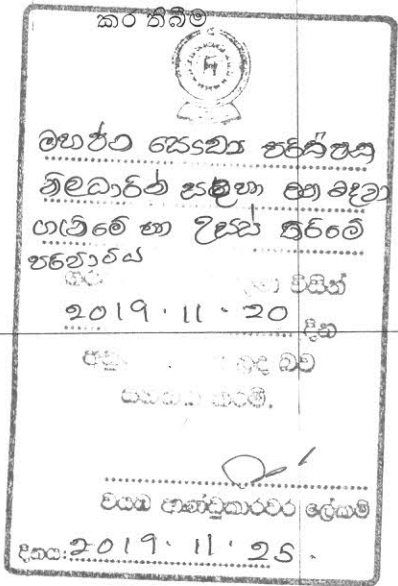 කර තිබීම
මහජන සෞඛ්‍ය පරීක්ෂක
නිලධාරීන් සඳහා බඳවා
ගැනීමේ හා උසස් කිරීමේ
පටිපාටිය
විසින්
2019.11.20 දින
බව
කරමි.
වයඹ ආණ්ඩුකාරවර ලේකම්
දිනය: 2019.11.25.